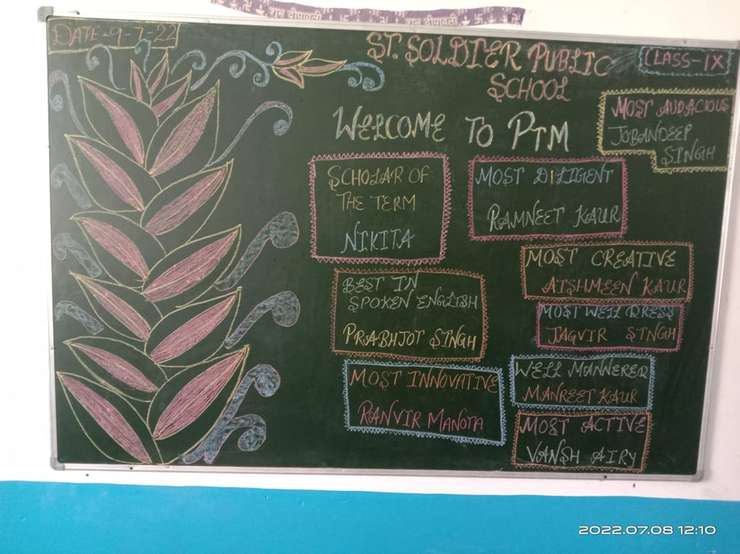 शुभ दीपावली
DATE-9-7-22
ST. SOLDIER PUBLIC
SCHOOL
CLASS-IX
WELCOME TO PTM
MOST AUDACIOUS
JOBANDEEP
SINGH
SCHOLAR OF
THE TERM
NIKITA
MOST DILIGENT
RAMNEET KAUR
MOST CREATIVE
AISHMEEN KAUR
BEST IN
SPOKEN ENGLISH
PRABHJOT SINGH
MOST WELL DRESS
JAGVIR SINGH
MOST INNOVATIVE
RANVIR MANOTA
WELL MANNERED
MANREET KAUR
MOST ACTIVE
VANSH AIRY
2022.07.08 12:10